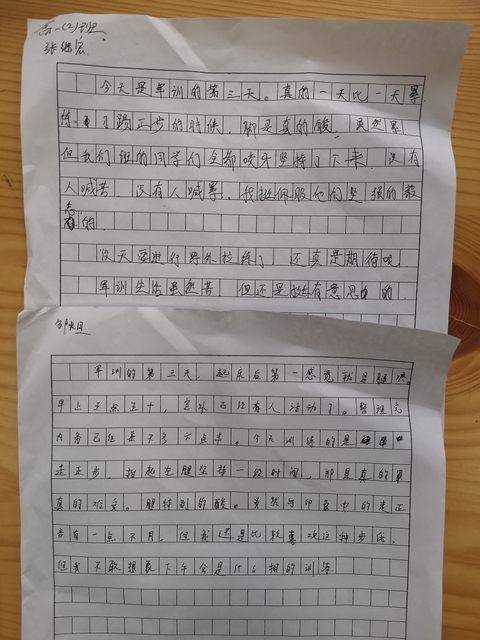 高一(2)班
张继宏
今天是军训的第三天。真的一天比一天累
练了踢正步的时候,脚是真的酸,虽然累
但我们组的同学们全都咬牙坚持了下来,没有
人喊苦,没有人喊累。我挺佩服他们坚强的毅
志的
后天要进行野外拉练了,还真是期待呢
军训生活虽然苦,但还是挺有意思的
军训的第三天,起床后第一感觉就是腿疼。
早上五点五十,室外已经有人活动了。整理完
内务已经差不多六点半。今天训练的是
走正步,抬起左腿坚持一段时间,那是真的
真的难受。腿特别的酸。虽然与印象中的走正
步有一点不同,但我还是比较喜欢这种步伐。
但我不敢想象下午会是什么样的训练